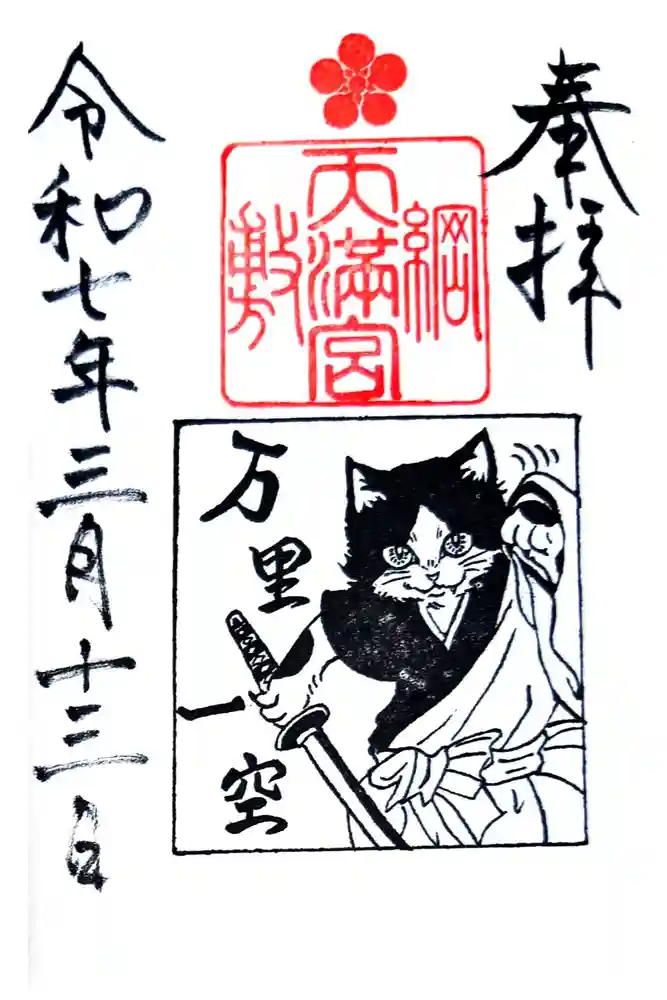 奉拝
綱
天満宮
敷
万里一空
令和七年三月十三日